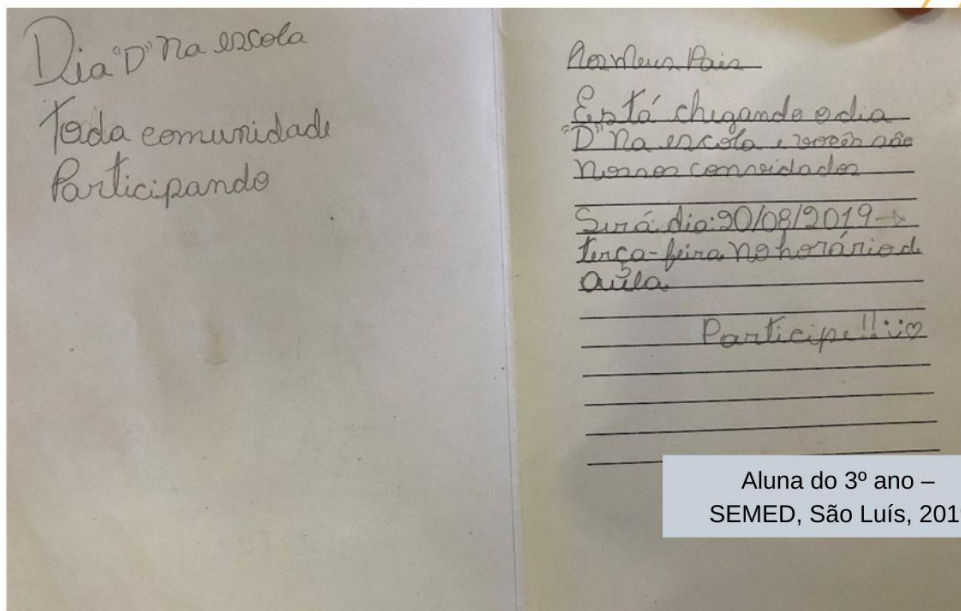 Dia "D" Na escola
Toda comunidade
Participando
Aos Meus Pais
Está chegando o dia
"D" Na escola e vocês são
Nossos convidados
Será dia: 20/08/2019
terça-feira No horário d
aula
Participe!!
Aluna do 3º ano –
SEMED, São Luís, 201